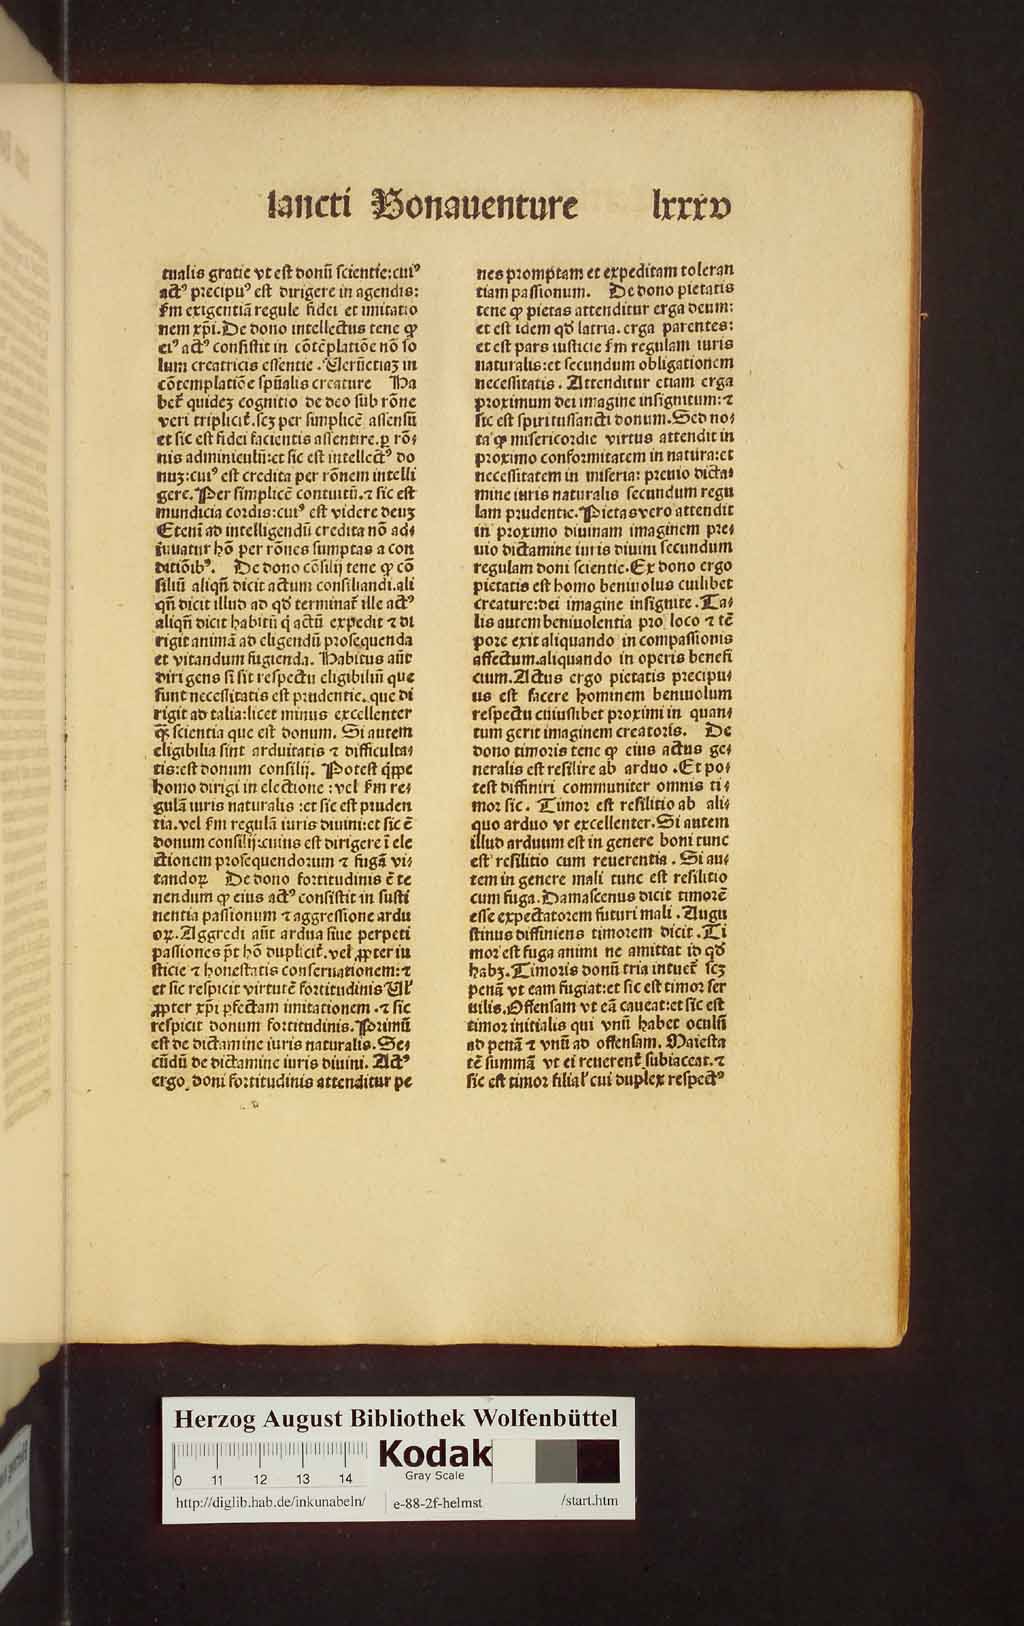 sancti Bonauenture lxxxv
tualis gratie vt est donū scientie:cuiꝰ
actꝰ precipuꝰ est dirigere in agendis:
ẜm exigentiā regule fidei et imitatio
nem xp̄i.De dono intellectus tene ꝙ
eiꝰ actꝰ consistit in cōtēplatiōe nō so
lum creatricis essentie . Uerūetiaꝫ in
cōtemplatiōe spūalis creature Ha
bet᷑ quideꝫ cognitio de deo sub rōne
veri triplicit᷑.scꝫ per simplicē assensū
et sic est fidei facientis assentire.ꝑ rō⸗
nis adminiculū:et sic est intellectꝰ do
nuꝫ:cuiꝰ est credita per rōnem intelli
gere.Per simplicē contuitū.⁊ sic est
mundicia cordis:cuiꝰ est videre deuꝫ
Etenī ad intelligendū credita nō ad⸗
iuuatur hō per rōnes sumptas a con
ditiōibꝰ. De dono cōsilij tene ꝙ cō
siliū aliqn̄ dicit actum consiliandi.ali
qn̄ dicit illud ad qd̓ terminat᷑ ille actꝰ
aliqn̄ dicit habitū q̇ actū expedit ⁊ di
rigit animā ad eligendū prosequenda
et vitandum fugienda. Habitus aūt
dirigens si sit respectu eligibiliū que
sunt necessitatis est prudentie. que di
rigit ad talia:licet minus excellenter
q̄ꝫ scientia que est donum. Si autem
eligibilia sint arduitatis ⁊ difficulta⸗
tis:est donum consilij. Potest q̄ppe
homo dirigi in electione : vel ẜm re⸗
gulā iuris naturalis :et sic est pruden
tia.vel ẜm regulā iuris diuini:et sic ē
donum consilij:cuius est dirigere ī ele
ctionem prosequendorum ⁊ fugā vi⸗
tandoꝝ De dono fortitudinis ē te
nendum ꝙ eius actꝰ consistit in susti
nentia passionum ⁊ aggressione ardu
oꝝ.Aggredi aūt ardua siue perpeti
passiones pt̄ hō duplicit᷑.vel ꝓpter iu
sticie ⁊ honestatis conseruationem:⁊
et sic respicit virtutē fortitudinis Ul̓
ꝓpter xp̄i ꝑfectam imitationem .⁊ sic
respicit donum fortitudinis.Primū
est de dictamine iuris naturalis.Se⸗
cūdū de dictamine iuris diuini. Actꝰ
ergo doni fortitudinis attenditur pe
nes promptam et expeditam toleran
tiam passionum. De dono pietatis
tene ꝙ pietas attenditur erga deum:
et est idem qd̓ latria. erga parentes:
et est pars iusticie ẜm regulam iuris
naturalis:et secundum obligationem
necessitatis . Attenditur etiam erga
proximum dei imagine insignitum:⁊
sic est spiritussancti donum.Sed no⸗
ta ꝙ misericordie virtus attendit in
proximo conformitatem in natura:et
necessitatem in miseria: preuio dicta⸗
mine iuris naturalis secundum regu
lam prudentie.Pietas vero attendit
in proximo diuinam imaginem pre⸗
uio dictamine iuris diuini secundum
regulam doni scientie.Ex dono ergo
pietatis est homo beniuolus cuilibet
creature:dei imagine insignite .Ta⸗
lis autem beniuolentia pro loco ⁊ tē
pore exit aliquando in compassionis
affectum.aliquando in operis benefi
cium.Actus ergo pietatis precipu⸗
us est facere hominem beniuolum
respectu cuiuslibet proximi in quan⸗
tum gerit imaginem creatoris. De
dono timoris tene ꝙ eius actus ge⸗
neralis est resilire ab arduo .Et po⸗
test diffiniri communiter omnis ti⸗
mor sic. Timor est resilitio ab ali⸗
quo arduo vt excellenter.Si autem
illud arduum est in genere boni tunc
est resilitio cum reuerentia . Si au⸗
tem in genere mali tunc est resilitio
cum fuga.Damascenus dicit timorē
esse expectatorem futuri mali .Augu
stinus diffiniens timorem dicit .Ti
mor est fuga animi ne amittat id qd̓
habꝫ.Timoris donū tria intuet᷑ scꝫ
penā vt eam fugiat:et sic est timor ser
uilis.Offensam vt eā caueat:et sic est
timor initialis qui vnū habet oculū
ad penā ⁊ vnū ad offensam. Maiesta
tē summā vt ei reuerent᷑ subiaceat.⁊
sic est timor filial̓ cui duplex respectꝰ
Herzog August Bibliothek Wolfenbüttel
Kodak
Gray Scale
0 11 12 13 14
http://diglib.hab.de/inkunabeln/ e-88-2f-helmst /start.htm